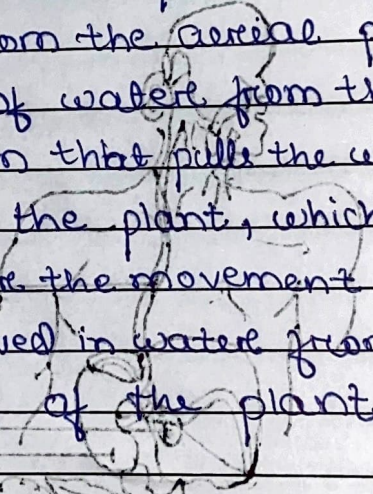 om the aereial p
of watere from th
n that pulls the w
the plant, which
re the movement
ved in watere from
of the plant